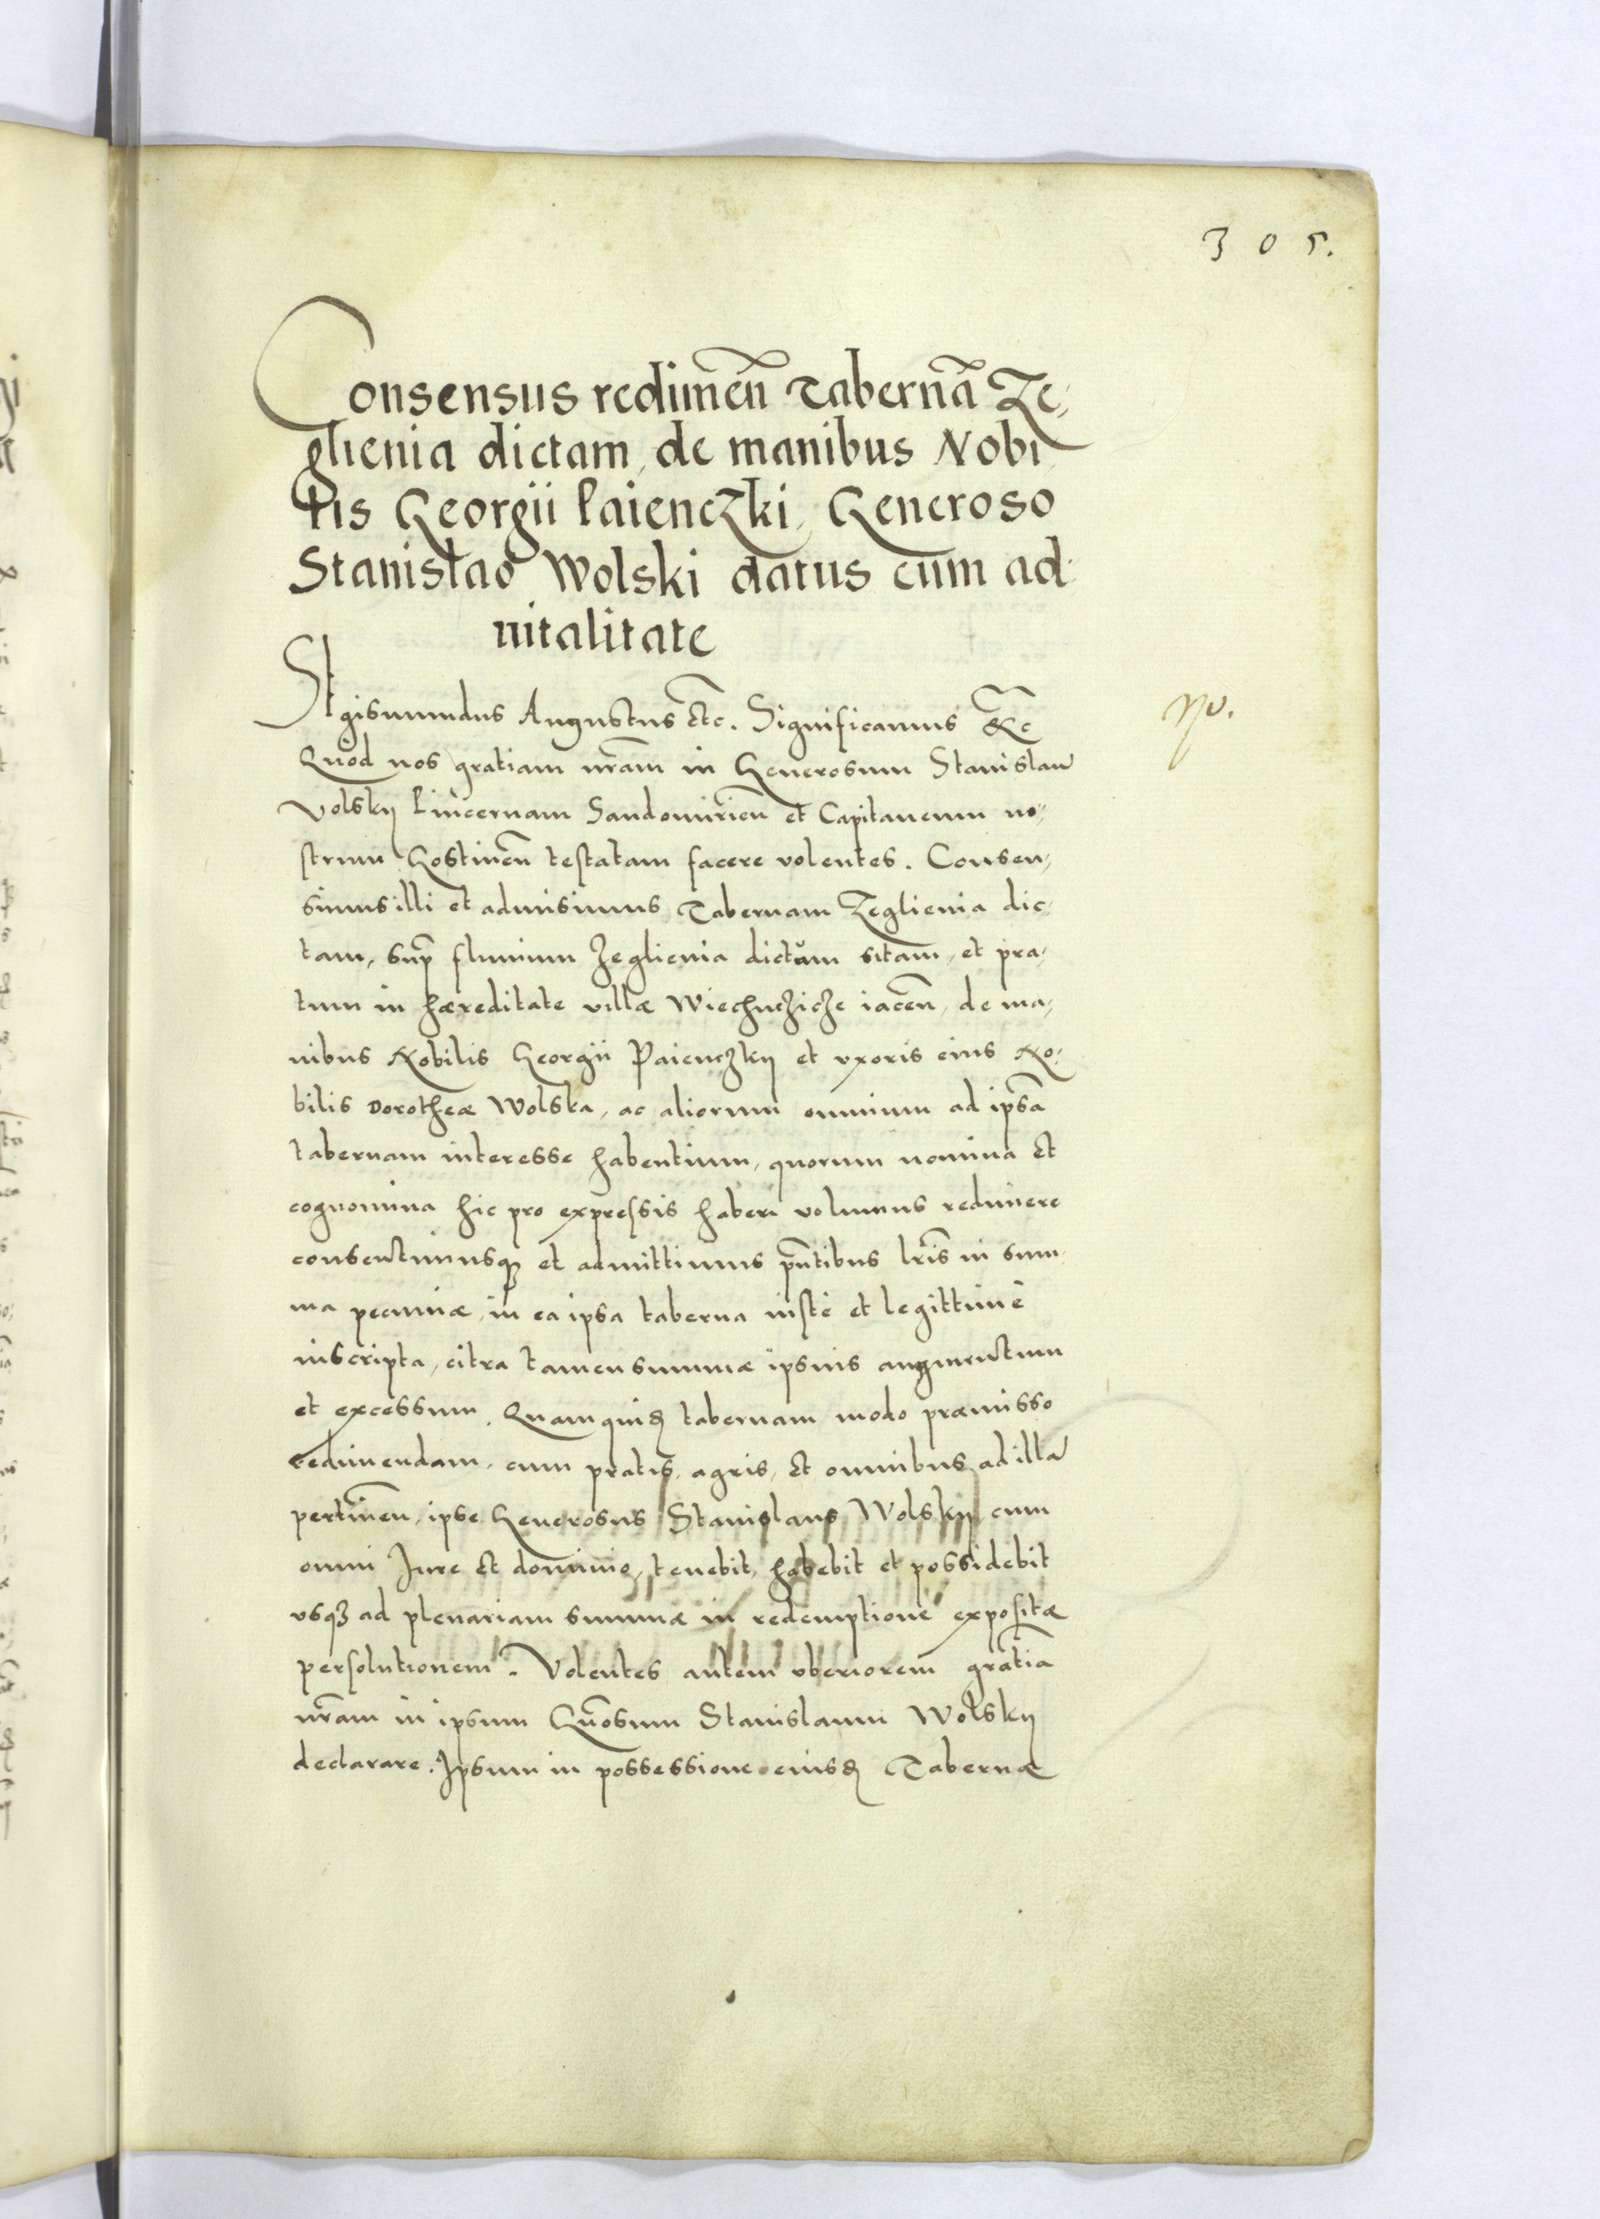 305.
Consensus redimen̄ Tabernā Ze,
glienia dictam, de manibus Nobi
lis Georgii Paienczki, Generoso
Stanislao Wolski datus cum ad
uitalitate
Sigismundus Augustus etc. Significamus &c
Quod nos gratiam nr̄am in Generosum Stanislaū
Volskij Pincernam Sandomirien̄ et Capitaneum no,
strum Gostinen̄ testatam facere volentes. Consen,
simus illi et admisimus Tabernam Zeglienia dic,
tam, sup̄ fluuium Zeglienia dictum sitam, et pra,
tum in hæreditate villæ Wiechuczicze iacen̄, de ma,
nibus Nobilis Georgii Paienczkij et vxoris eius No,
bilis Dorotheæ Wolska, ac aliorum omnium ad ipsā
tabernam interesse habentium, quorum nomina et
cognomina hic pro expressis haberi volumus redimere
consentimusqꝫ et admittimus pn̄tibus lr̄is in sum,
ma pecuniæ, in ea ipsa taberna iustè et legittimè
inscripta, citra tamen summæ ipsius augmentum
et excessum. Quamquidꝫ tabernam modo præmisso
redimendam, cum pratis, agris, et omnibus ad illā
pertinen̄, ipse Generosus Stanislaus Wolskij cum
omni Jure et dominio, tenebit, habebit et possidebit
vsqꝫ ad plenariam summæ in redemptione expositæ
persolutionem. Volentes autem vberiorem gratiā
nr̄am in ipsum Gn̄osum Stanislaum Wolskij
declarare. Ipsum in possessione eiusdꝫ Tabernæ